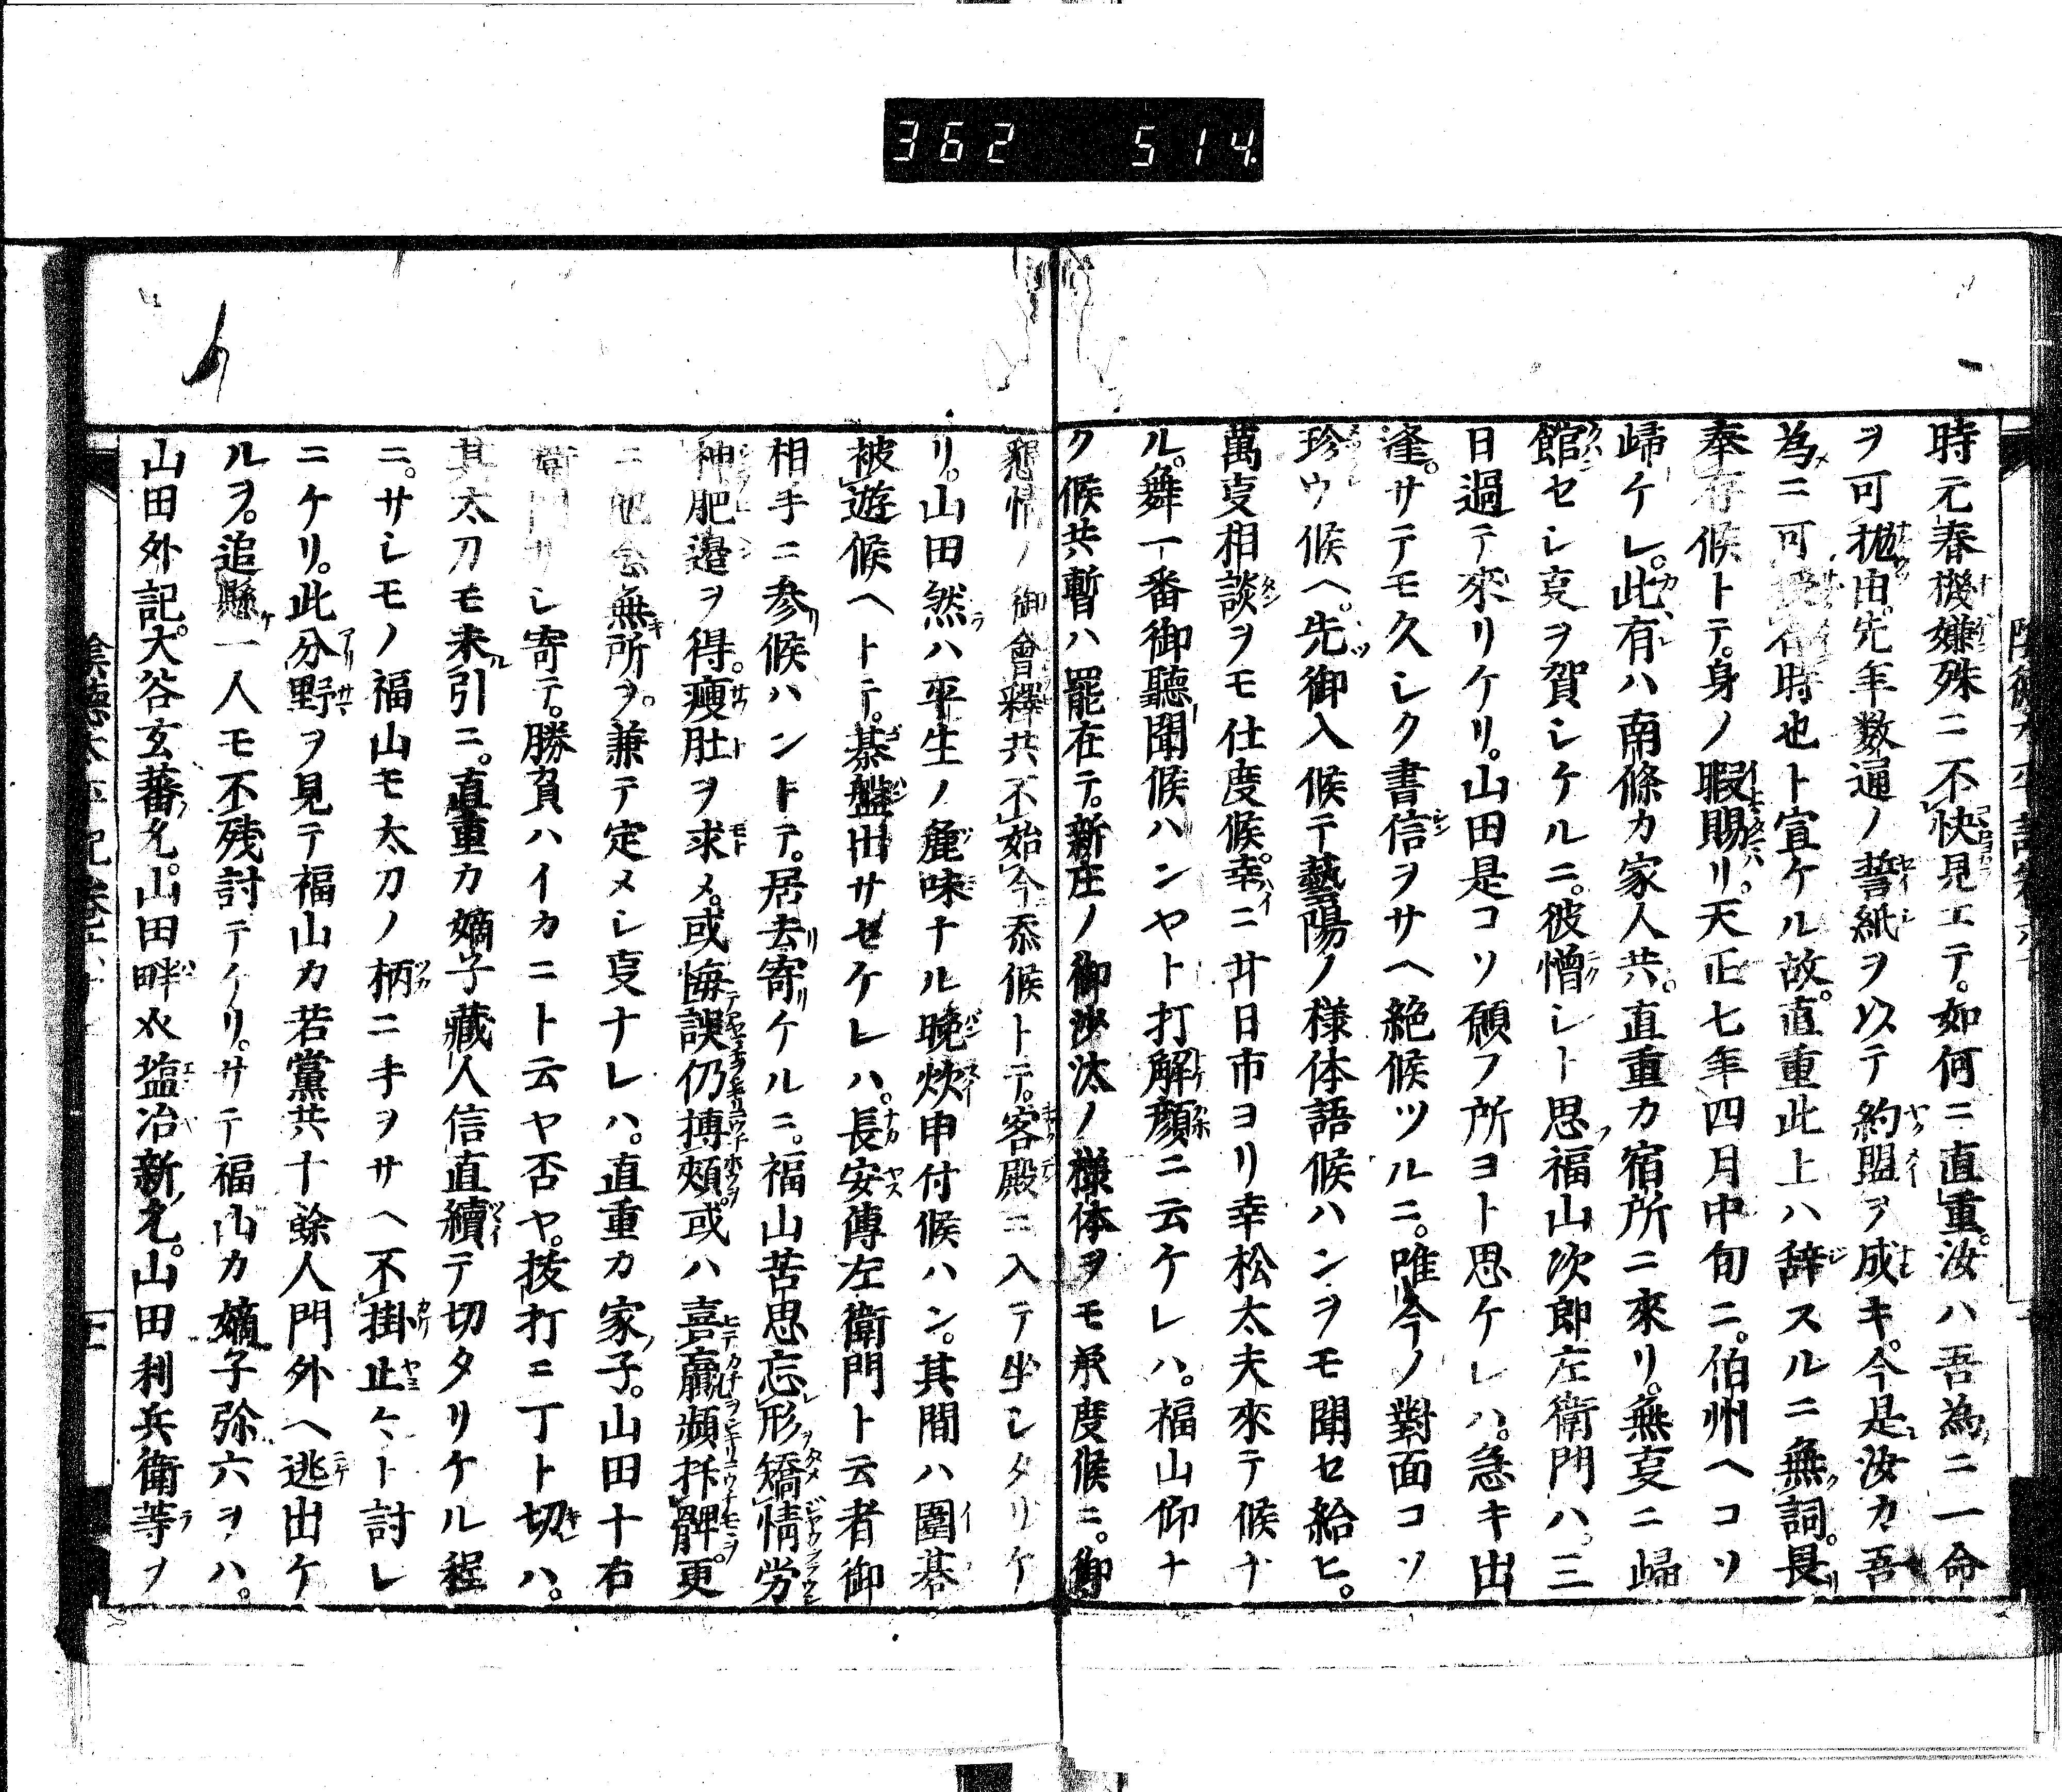 362 514
時元春機嫌殊ニ不快見エテ。如何ニ直重。汝ハ吾為ニ一命
ヲ可抛由。先年数通ノ誓紙ヲ以テ約盟ヲ成キ。今是汝カ吾
為ニ可時也ト宣ケル故。直重此上ハ辞スルニ無詞。長
奉存候トテ。身ノ暇賜リ。天正七年四月中旬ニ。伯州ヘコソ
帰ケレ。此有ハ南條カ家人共。直重カ宿所ニ來リ。無亊ニ歸
館セシ亊ヲ賀シケルニ。彼憎シト思フ福山次郎左衛門ハ。三
日過テ來リケリ。山田是コソ願フ所ヨト思ケレハ。急キ出
逢。サテモ久シク書信ヲサヘ絶候ツルニ。唯今ノ對面コソ
珍ウ候ヘ。先御入候テ藝陽ノ様体語候ハンヲモ聞セ給ヒ。
萬亊相談ヲモ仕度候。幸ニ廿日市ヨリ幸松太夫來テ候ナ
ル。舞一番御聽聞候ハンヤト打解顔ニ云ケレハ。福山仰ナ
ク候共暫ハ罷在テ。新庄ノ御沙汰ノ様体ヲモ承度候ニ。御
懇情ノ御會釋共不始今忝候トテ。客殿ニ入テ坐シタリケ
リ。山田然ハ平生ノ麁味ナル晩炊申付候ハン。其間ハ圍碁
被遊候ヘトテ。碁盤出サセケレハ。長安傳左衛門ト云者御
相手ニ参候ハントテ。居去寄ケルニ。福山苦思忘形矯情労
神肥邉ヲ得。痩肚ヲ求メ。或悔誤仍搏頬或ハ喜贏頻拆髀更
ニ他念無所ヲ。兼テ定メシ亊ナレハ。直重カ家子。山田十右
衛門サシ寄テ。勝負ハイカニト云ヤ否ヤ。抜打ニ丁ト切ハ。
其太刀モ未引ニ。直重カ嫡子藏人信直續テ切タリケル程
ニ。サシモノ福山モ太刀ノ柄ニ手ヲサヘ不掛止々ト討レ
ニケリ。此分野ヲ見テ福山カ若黨共十餘人門外ヘ逃出ケ
ルヲ。追懸一人モ不残討テケリ。サテ福山カ嫡子弥六ヲハ。
山田外記。大谷玄蕃允。山田畔水塩冶新允。山田利兵衛等ヲ